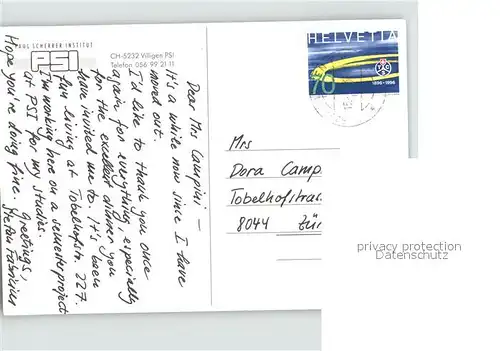 PAUL SCHERRER INSTITUT
PSI
CH-5232 Villigen PSI
Telefon 056 99 21 11
Dear Mrs Campini –
It's a while now since I have
moved out.
I'd like to thank you once
again for everything, especially
for the excellent dinner you
have invited me to. It's been
fun living at Tobelhofstr. 227.
I'm working here on a semesterproject
at PSI for my studies.
Hope you're doing fine. Greetings,
Stefan
HELVETIA
70
1896 - 1996
Mrs
Dora Camp
Tobelhofstras
8044 Zür
privacy protection
Datenschutz